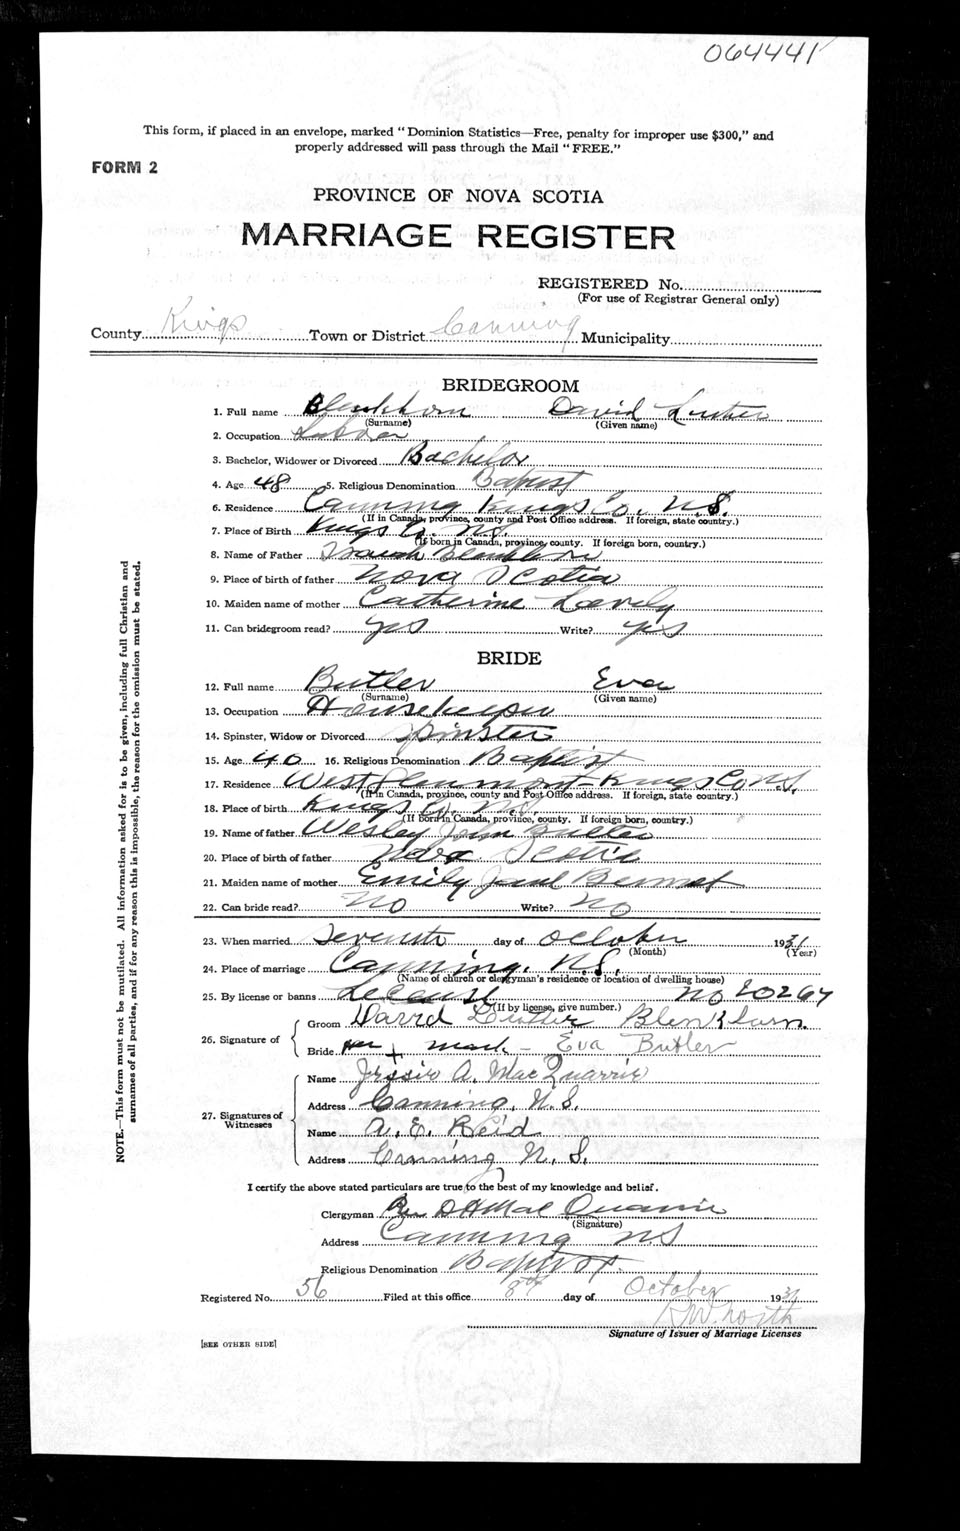 064441
This form, if placed in an envelope, marked "Dominion Statistics—Free, penalty for improper use $300," and
properly addressed will pass through the Mail "FREE."
FORM 2
PROVINCE OF NOVA SCOTIA
MARRIAGE REGISTER
REGISTERED No.
(For use of Registrar General only)
County Kings Town or District Canning Municipality
BRIDEGROOM
1. Full name Blenkhorn David Luther
(Surname) (Given name)
2. Occupation
3. Bachelor, Widower or Divorced Bachelor
4. Age 48 5. Religious Denomination Baptist
6. Residence Canning Kings Co. N.S.
(If in Canada, province, county and Post Office address. If foreign, state country.)
7. Place of Birth Kings Co. N.S.
(If born in Canada, province, county. If foreign born, country.)
8. Name of Father Blenkhorn
9. Place of birth of father Nova Scotia
10. Maiden name of mother Catherine Lavely
11. Can bridegroom read? yes Write? yes
BRIDE
12. Full name Butler Eva
(Surname) (Given name)
13. Occupation Housekeeper
14. Spinster, Widow or Divorced Spinster
15. Age 40 16. Religious Denomination Baptist
17. Residence West Kings Co N.S.
(If in Canada, province, county and Post Office address. If foreign, state country.)
18. Place of birth Kings Co. N.S.
(If born in Canada, province, county. If foreign born, country.)
19. Name of father Wesley John Butler
20. Place of birth of father Nova Scotia
21. Maiden name of mother Emily Bennet
22. Can bride read? No Write? No
23. When married Seventh day of October 1931
(Month) (Year)
24. Place of marriage Canning, N.S.
(Name of church or clergyman's residence or location of dwelling house)
25. By license or banns no 20267
(If by license, give number.)
26. Signature of
Groom David Luther Blenkhorn
Bride Her + mark - Eva Butler
27. Signatures of Witnesses
Name Jessie A. MacQuarrie
Address Canning, N.S.
Name A. E. Reid
Address Canning N. S.
I certify the above stated particulars are true to the best of my knowledge and belief.
Clergyman Rev D H MacQuarrie
(Signature)
Address Canning NS
Religious Denomination Baptist
Registered No. 56 Filed at this office 8th day of October 1931
R.W. North
Signature of Issuer of Marriage Licenses
[SEE OTHER SIDE]
NOTE.—This form must not be mutilated. All information asked for is to be given, including full Christian and
surnames of all parties, and if for any reason this is impossible, the reason for the omission must be stated.